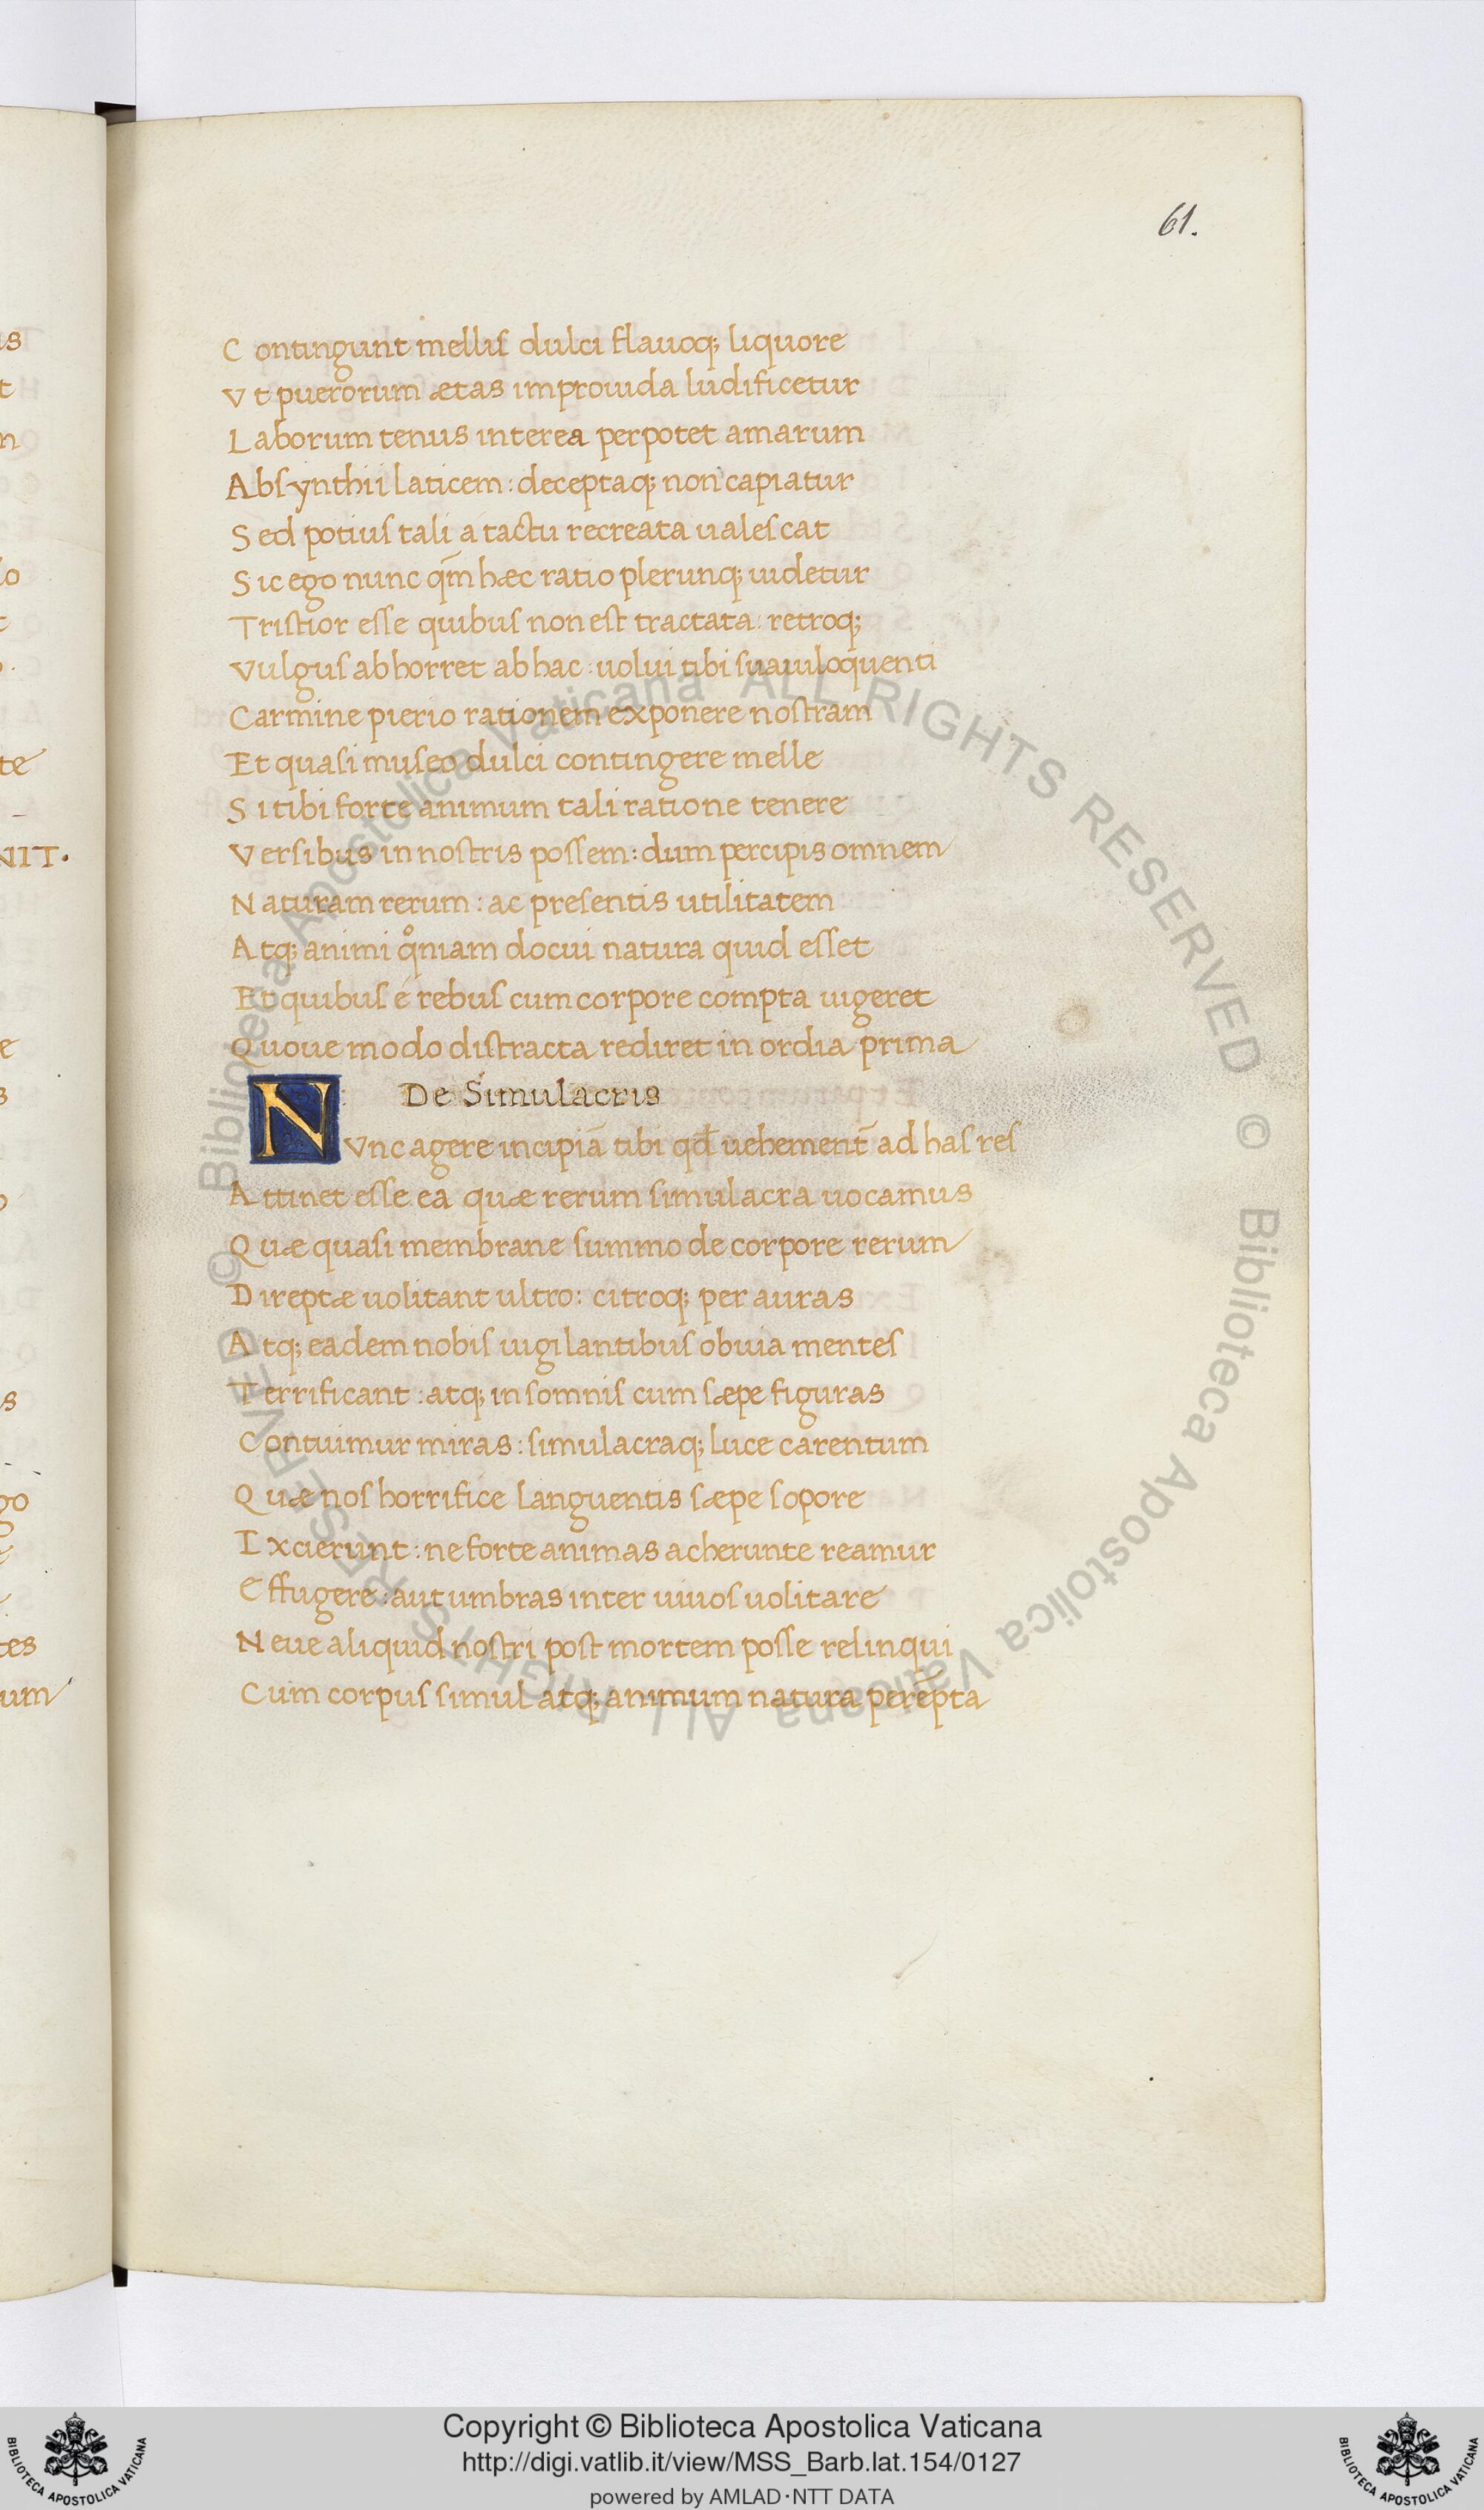 61.
Contingunt mellis dulci flauoq; liquore
Vt puerorum ætas improuida ludificetur
Laborum tenus interea perpotet amarum
Absynthii laticem: deceptaq; non capiatur
Sed potius tali a tactu recreata ualescat
Sic ego nunc qm̄ hæc ratio plerunq; uidetur
Tristior esse quibus non est tractata: retroq;
Vulgus abhorret ab hac: uolui tibi suauiloquenti
Carmine pierio rationem exponere nostram
Et quasi museo dulci contingere melle
Si tibi forte animum tali ratione tenere
Versibus in nostris possem: dum percipis omnem
Naturam rerum: ac presentis utilitatem
Atq; animi qͦniam docui natura quid esset
Et quibus é rebus cum corpore compta uigeret
Quoue modo distracta rediret in ordia prima
De Simulacris
NVnc agere incipiā tibi qd̄ uehement̄ ad has res
Attinet esse ea quæ rerum simulacra uocamus
Quæ quasi membrane summo de corpore rerum
Direptæ uolitant ultro: citroq; per auras
Atq; eadem nobis uigilantibus obuia mentes
Terrificant: atq; in somnis cum sæpe figuras
Contuimur miras: simulacraq; luce carentum
Quæ nos horrifice languentis sæpe sopore
Excierunt: ne forte animas acherunte reamur
Effugere: aut umbras inter uiuos uolitare
Neue aliquid nostri post mortem posse relinqui
Cum corpus simul atq; animum natura perempta
© Biblioteca Apostolica Vaticana ALL RIGHTS RESERVED © Biblioteca Apostolica Vaticana ALL RIGHTS RESERVED
Copyright © Biblioteca Apostolica Vaticana
http://digi.vatlib.it/view/MSS_Barb.lat.154/0127
powered by AMLAD·NTT DATA
BIBLIOTECA APOSTOLICA VATICANA
BIBLIOTECA APOSTOLICA VATICANA